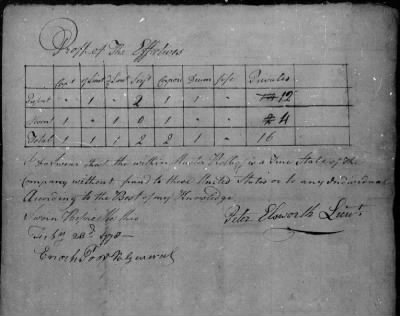 Proof of The Effectives
Capt 1 Lieut 2 Lieut Serjt Corpor Drum fife Privates
Present - 1 - 2 1 1 - 12
Absent - 1 0 1 - - 4
Total 1 1 2 2 1 - 16
I do Swear that the within Muster Roll is a True State of the
Company without fraud to these United States or to any Individual
According to the Best of my Knowledge
Sworn Before Me this
Peter Elsworth Lieut.
1778
Enoch Poor B. General